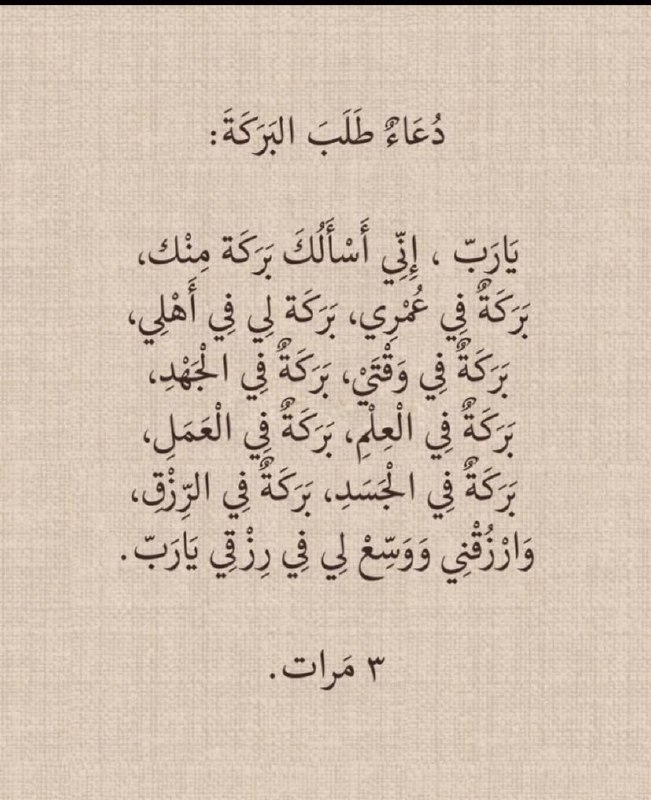 دُعَاءٌ طَلَبَ البَرَكَةَ:
يَارَبّ ، إِنِّي أَسْأَلُكَ بَرَكَة مِنْك،
بَرَكَةٌ فِي عُمْرِي، بَرَكَة لِي فِي أَهْلِي،
بَرَكَةٌ فِي وَقْتَيْ، بَرَكَةٌ فِي الْجَهْدِ،
بَرَكَةٌ فِي الْعِلْمِ، بَرَكَةٌ فِي الْعَمَلِ،
بَرَكَةٌ فِي الْجَسَدِ، بَرَكَةٌ فِي الرِّزْقِ،
وَارْزُقْنِي وَوَسِّعْ لِي فِي رِزْقِي يَارَبّ.
٣ مَرات.